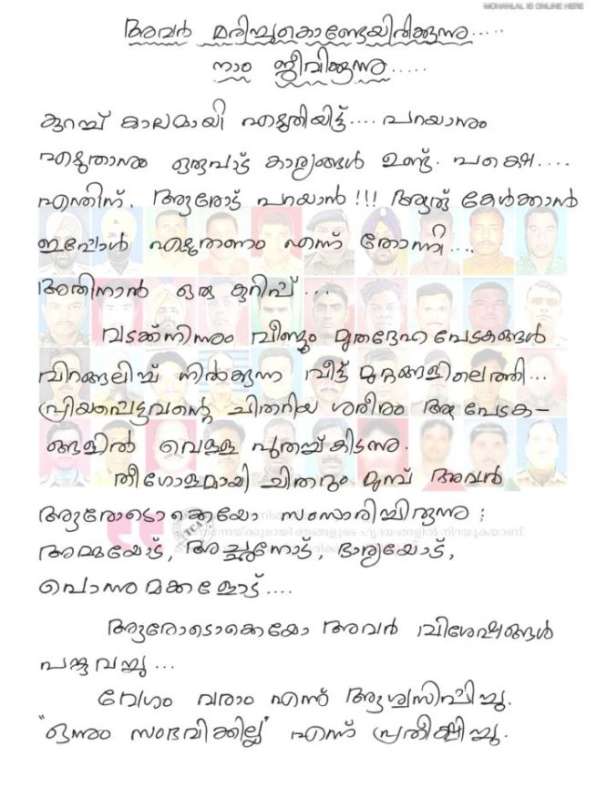 MOHANLAL IS ONLINE HERE
അവർ മരിച്ചുകൊണ്ടേയിരിക്കുന്നു.....
നാം ജീവിക്കുന്നു.....
കുറച്ച് കാലമായി എഴുതിയിട്ട്.... പറയാനും
എഴുതാനും ഒരുപാട് കാര്യങ്ങൾ ഉണ്ട്. പക്ഷെ....
എന്തിന്. ആരോട് പറയാൻ!!! ആരു കേൾക്കാൻ
ഇപ്പോൾ എഴുതണം എന്ന് തോന്നി....
അതിനാൻ ഒരു കുറിപ്പ്...
വടക്ക്നിന്നും വീണ്ടും മൃതദേഹപേടകങ്ങൾ
വിറങ്ങലിച്ച് നിൽക്കുന്ന വീട്ട് മുറ്റങ്ങളിലെത്തി...
പ്രിയപ്പെട്ടവന്റെ ചിതറിയ ശരീരം ആ പേടക-
ങ്ങളിൽ വെള്ള പുതച്ച്കിടന്നു.
തീഗോളമായി ചിതറും മുമ്പ് അവർ
ആരോടൊക്കെയോ സംസാരിച്ചിരുന്നു :
അമ്മയോട്, അച്ഛനോട്, ഭാര്യയോട്,
പൊന്നുമക്കളോട്....
ആരോടൊക്കെയോ അവർ വിശേഷങ്ങൾ
പങ്കുവച്ചു...
വേഗം വരാം എന്ന് ആശ്വസിപ്പിച്ചു.
"ഒന്നും സംഭവിക്കില്ല" എന്ന് പ്രതീക്ഷിച്ചു.